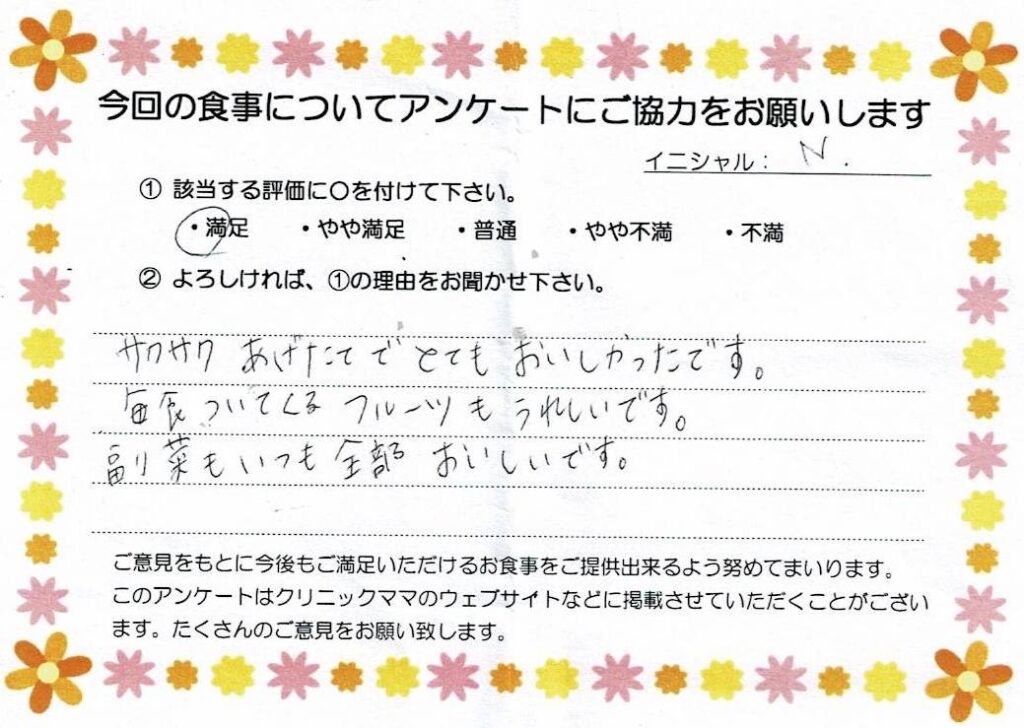 今回の食事についてアンケートにご協力をお願いします
イニシャル： N.
① 該当する評価に〇を付けて下さい。
・満足 ・やや満足 ・普通 ・やや不満 ・不満
② よろしければ、①の理由をお聞かせ下さい。
サクサク あげたてで とても おいしかったです。
毎食 ついてくる フルーツも うれしいです。
副菜も いつも 全部 おいしいです。
ご意見をもとに今後もご満足いただけるお食事をご提供出来るよう努めてまいります。
このアンケートはクリニックママのウェブサイトなどに掲載させていただくことがござい
ます。たくさんのご意見をお願い致します。